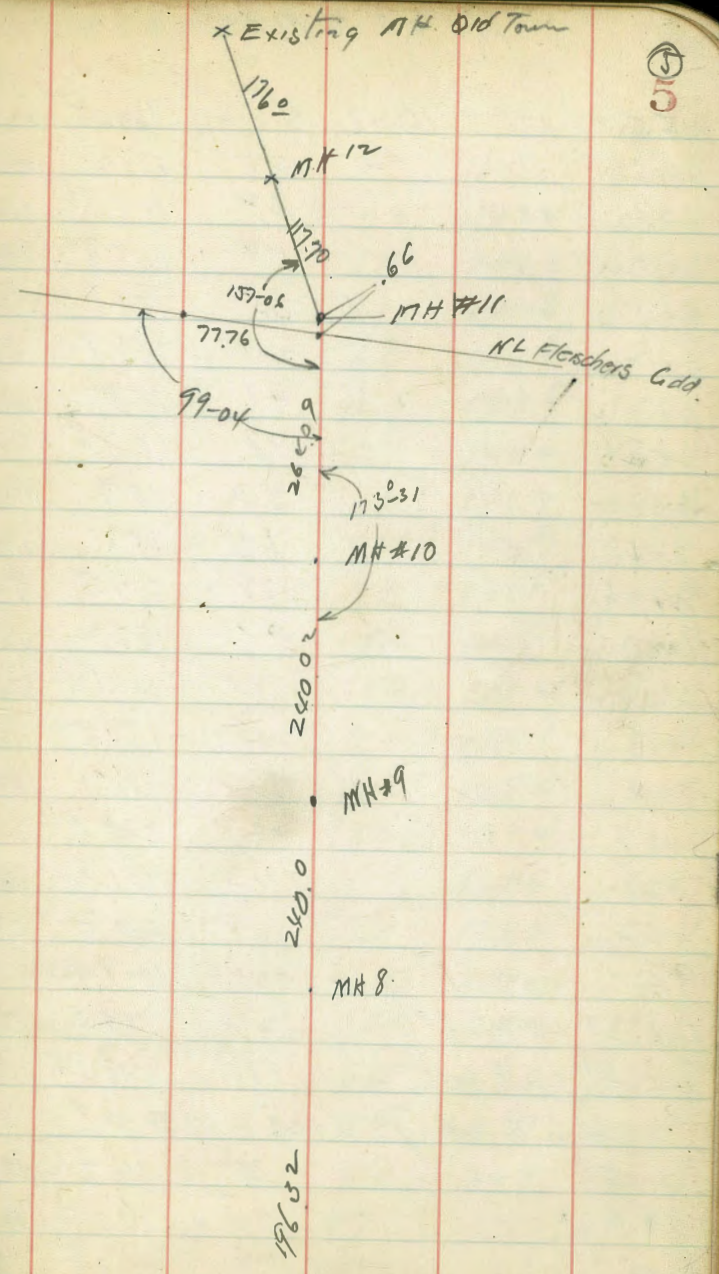 Existing MH. Old Town
5
5
176.0
MH 12
117.70
.66
157-06
MH #11
77.76
NL Fleischers Add.
99-04
264.09
173°-31
MH #10
240.02
MH #9
240.0
MH 8.
196.32